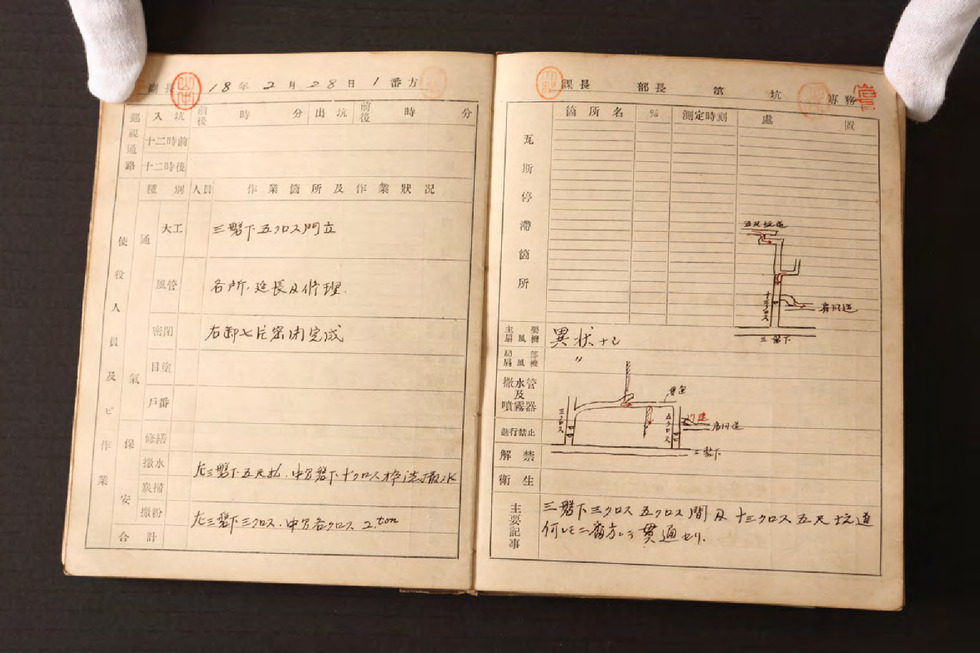 18年2月28日1番方
巡視通路 入坑 前後 時 分 出坑 前後 時 分
十二時前
十二時後
使役人員及ビ作業
種別 人員 作業箇所及作業状況
通氣
大工 三盤下五クロス門立
風管 各所、延長及修理
密閉 右卸七片密閉完成
目塗
戸番
保安
修繕
撒水
炭掃
撒粉 左三盤下三クロス、中 各クロス 2.ton
合計
課長 部長 坑 専務
瓦斯停滞箇所
箇所名 % 測定時刻 處置
五尺坑道
三盤下
主要扇風機 異状ナシ
局部扇風機 〃
撒水管及噴霧器
三クロス
五クロス
進行禁止
二盤下
解禁
衛生
主要記事
三盤下三クロス五クロス間及十三クロス五尺坑道
何レモ二番方ニテ貫通セリ.